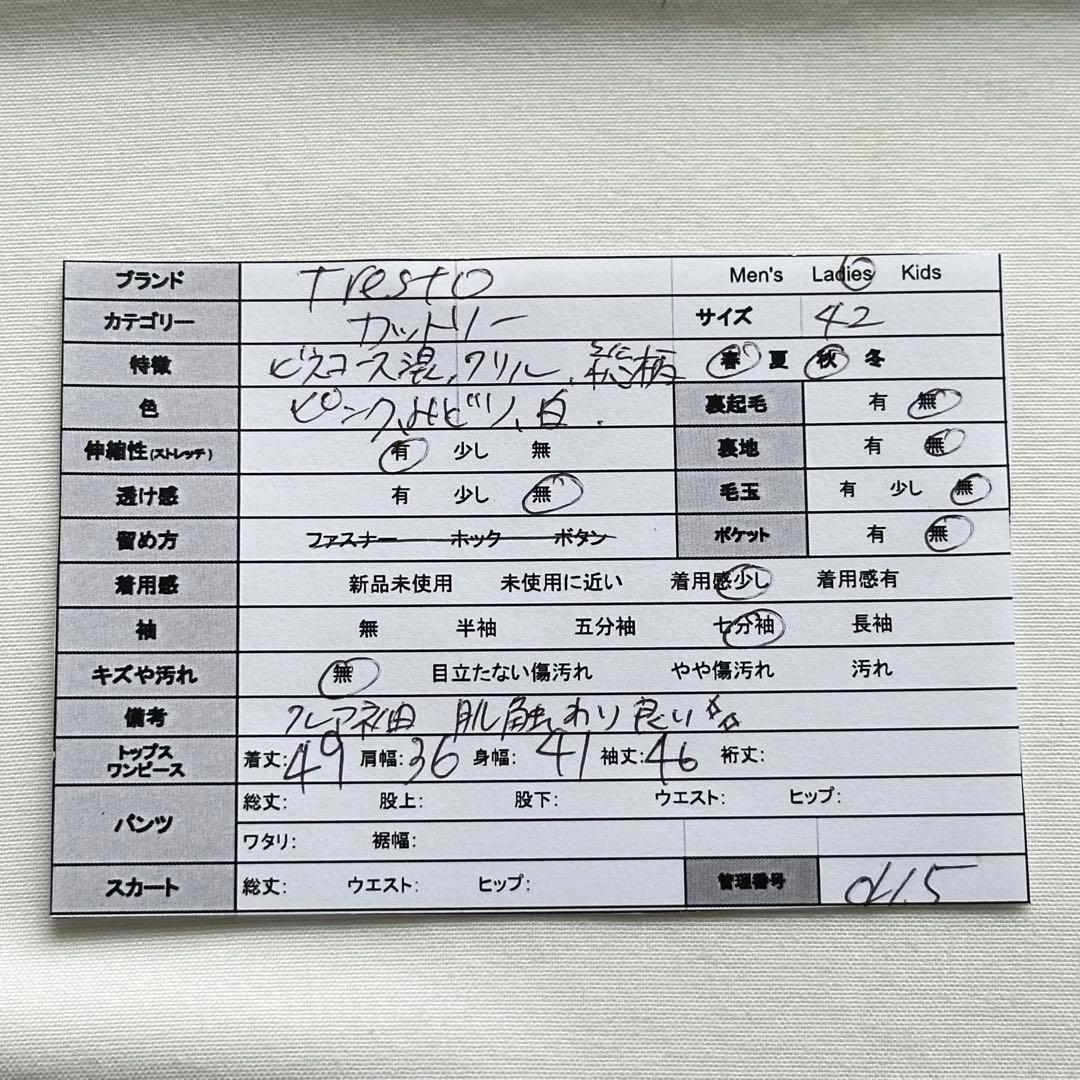 ブランド Tresto Men's Ladies Kids
カテゴリー カットソー サイズ 42
特徴 ビスコース混、フリル、総柄 春 夏 秋 冬
色 ピンク、ネビツ、白. 裏起毛 有 無
伸縮性(ストレッチ) 有 少し 無 裏地 有 無
透け感 有 少し 無 毛玉 有 少し 無
留め方 ファスナー ホック ボタン ポケット 有 無
着用感 新品未使用 未使用に近い 着用感少し 着用感有
袖 無 半袖 五分袖 七分袖 長袖
キズや汚れ 無 目立たない傷汚れ やや傷汚れ 汚れ
備考 フレア袖 肌触わり良い
トップス ワンピース 着丈:49 肩幅:36 身幅:41 袖丈:46 裄丈:
パンツ 総丈: 股上: 股下: ウエスト: ヒップ:
ワタリ: 裾幅:
スカート 総丈: ウエスト: ヒップ: 管理番号